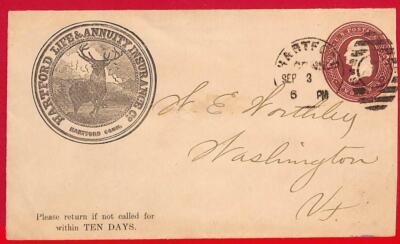 HARTFORD LIFE & ANNUITY INSURANCE CO.
HARTFORD CONN.
HARTFO
SEP 3
6 PM
W. E. Worthley
Washington
Vt.
Please return if not called for
within TEN DAYS.